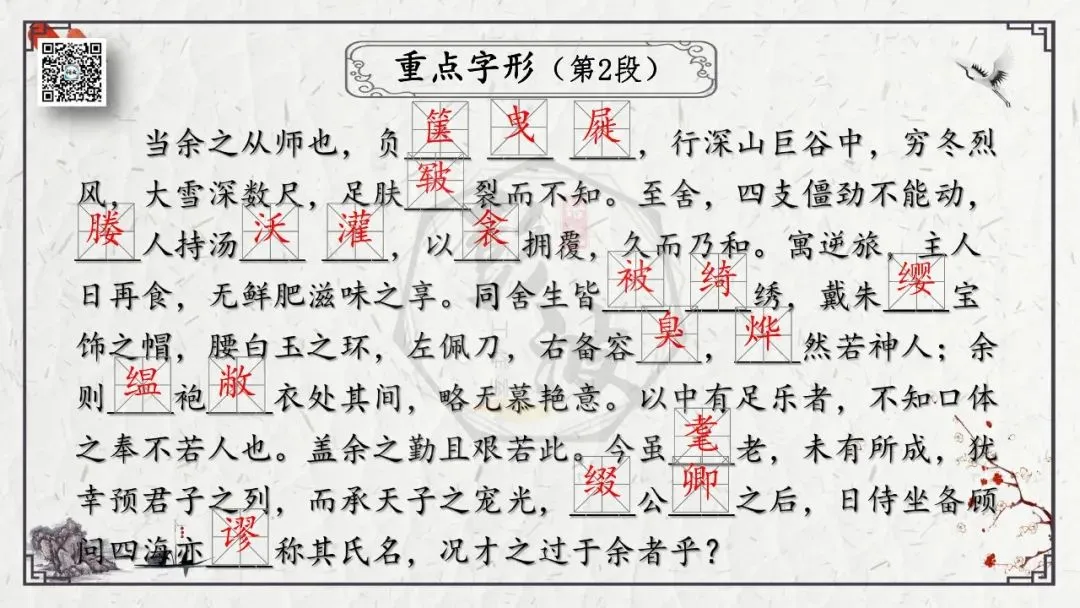 重点字形（第2段）
当余之从师也，负箧曳屣，行深山巨谷中，穷冬烈
风，大雪深数尺，足肤皲裂而不知。至舍，四支僵劲不能动，
媵人持汤沃灌，以衾拥覆，久而乃和。寓逆旅，主人
日再食，无鲜肥滋味之享。同舍生皆被绮绣，戴朱缨宝
饰之帽，腰白玉之环，左佩刀，右备容臭，烨然若神人；余
则缊袍敝衣处其间，略无慕艳意。以中有足乐者，不知口体
之奉不若人也。盖余之勤且艰若此。今虽耄老，未有所成，犹
幸预君子之列，而承天子之宠光，缀公卿之后，日侍坐备顾
问四海亦谬称其氏名，况才之过于余者乎？